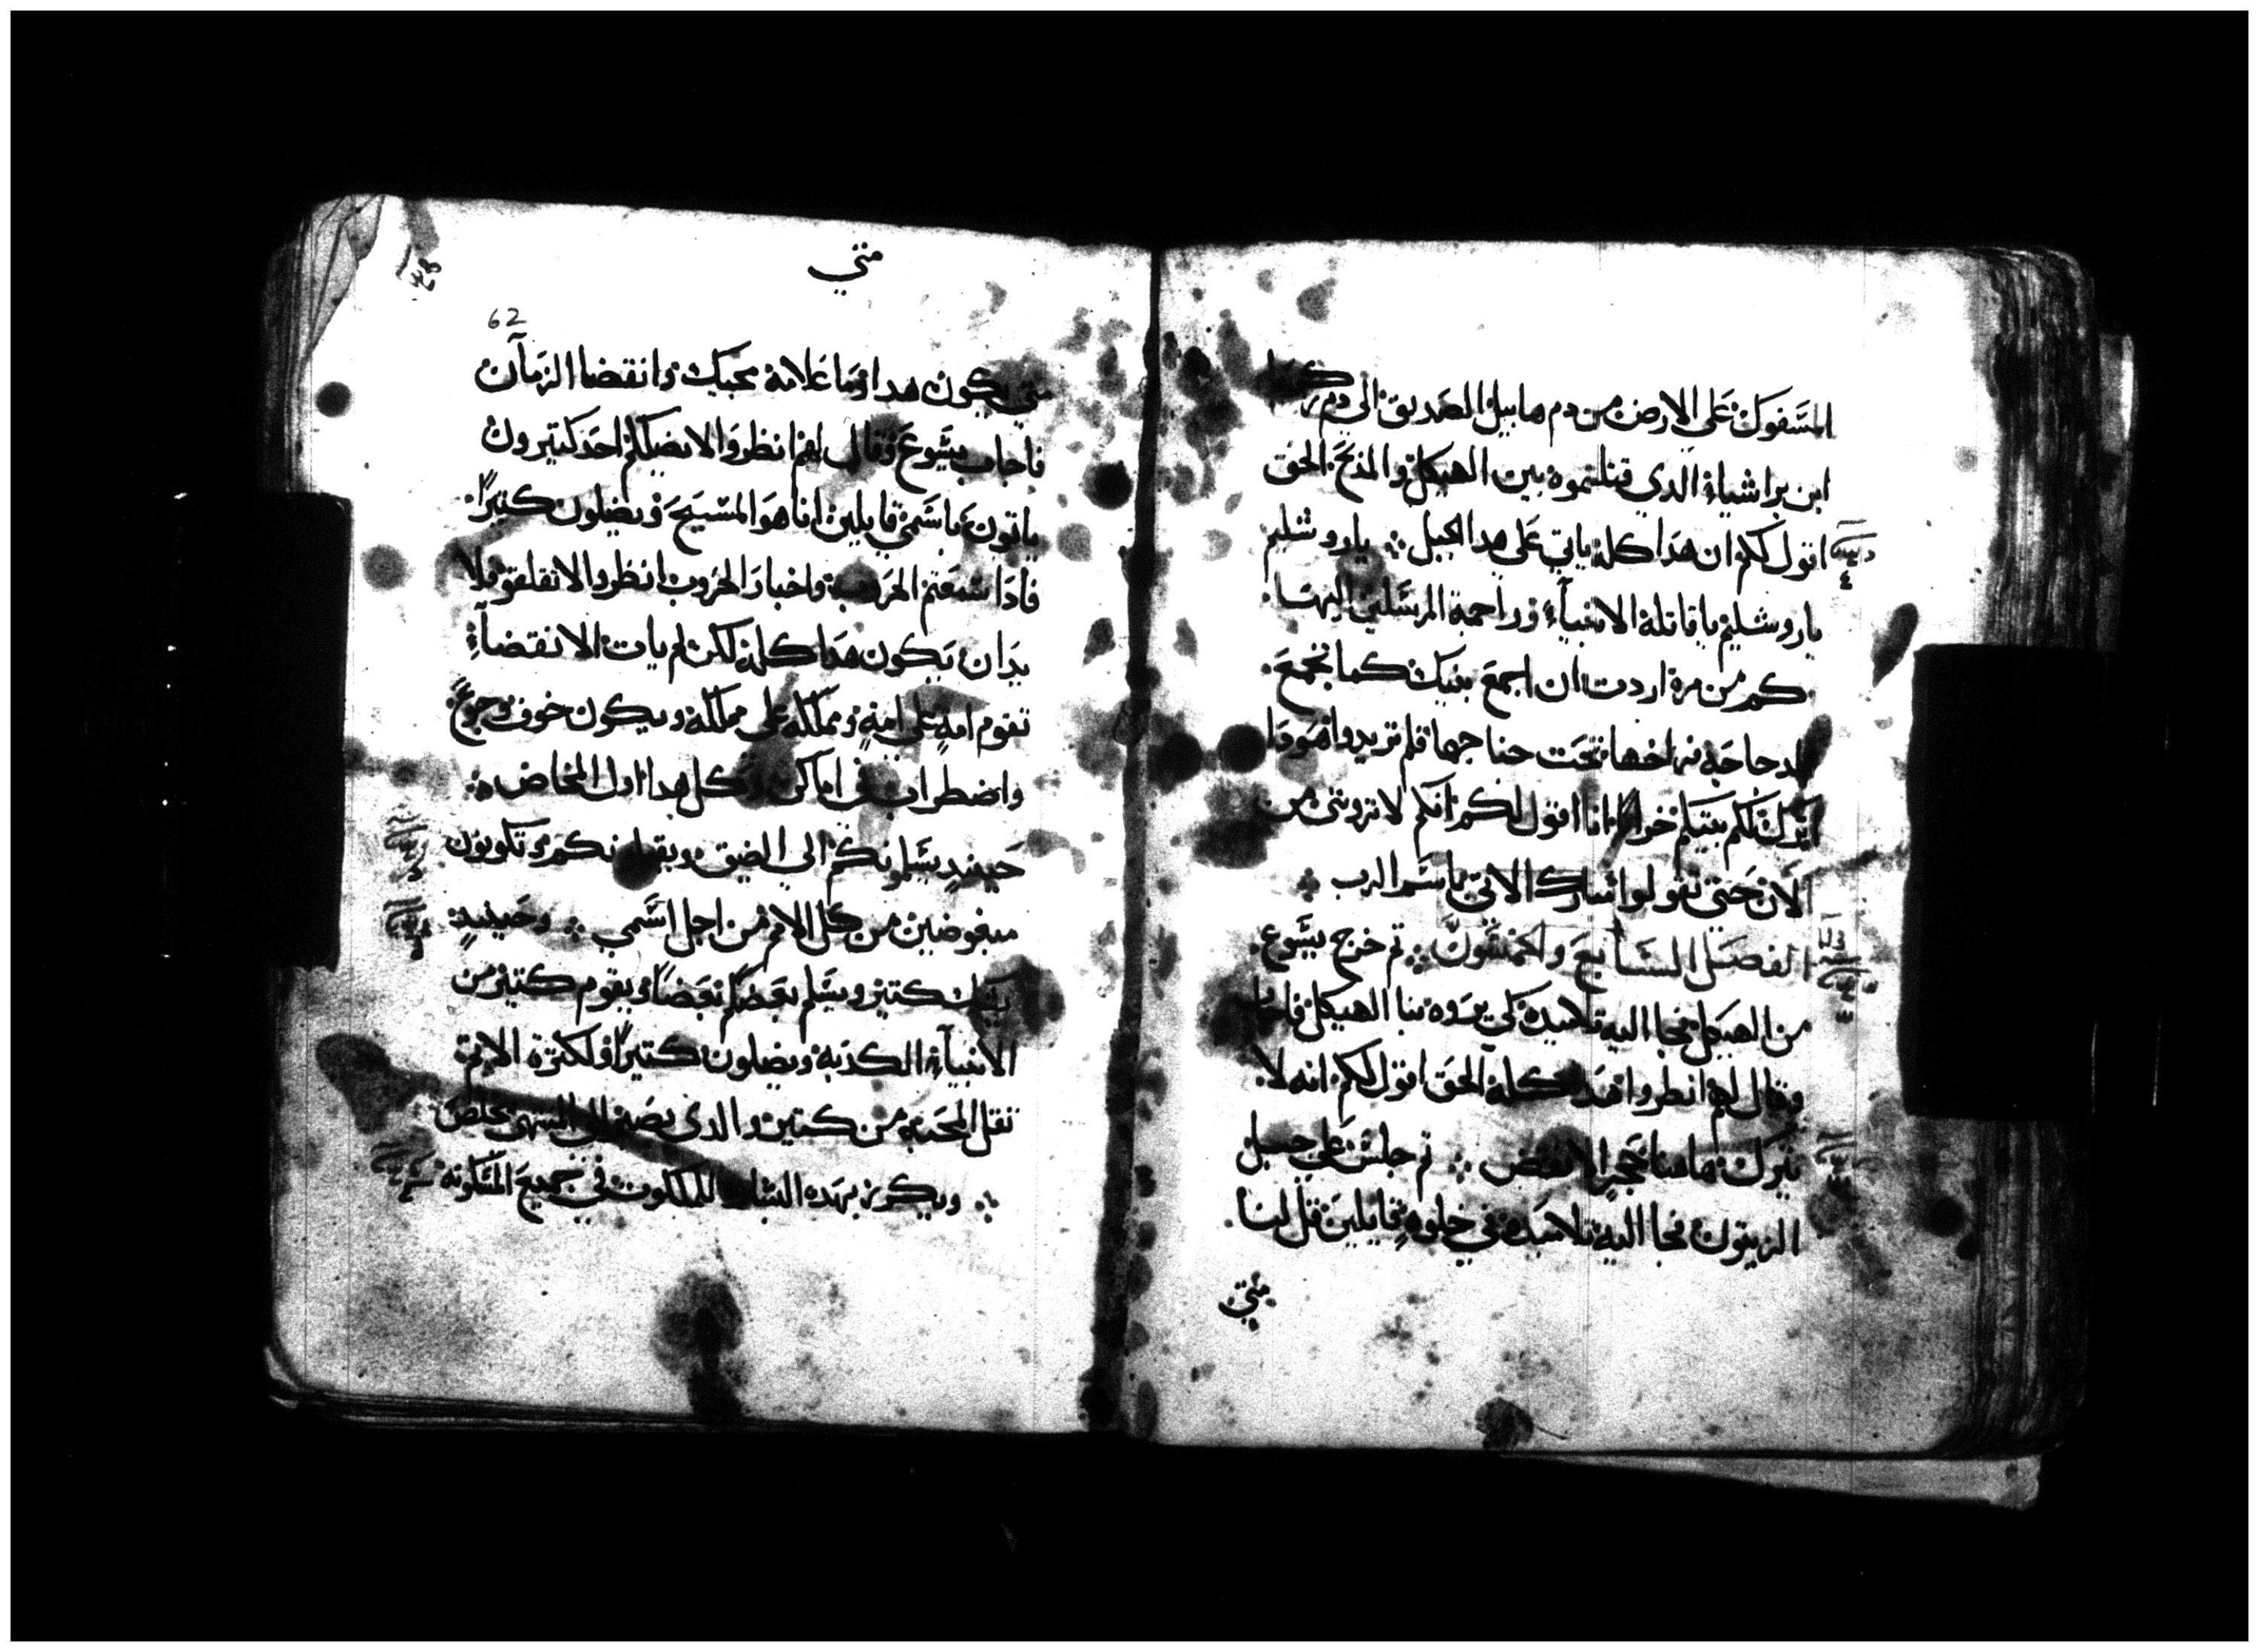 المسفوك على الارض من دم هابيل الصديق الى دم زكريا
ابن براشياء الدي قتلتموه بين الهيكل والمدبح الحق
اقول لكم ان هدا كله ياتي على هدا الجيل ⁘ ياروشليم
ياروشليم ياقاتلة الانبيآء وراجمة المرسلين اليها
كم من مرة اردت ان اجمع بنيك كما تجمع
الدجاجة فراخها تحت جناجها فلم تريدوا هودا
اترك لكم بيتكم خرابا انا اقول لكم انكم لا تروني من
الان حتى تقولوا مبارك الاتي باسم الرب ⁘
الفصل السابع والخمسون ⁘ تم خرج يسوع
من الهيكل فجا اليه تلاميده كي يروه بنا الهيكل فاجاب
وقال لهم انظروا هدا كله الحق اقول لكم انه لا
يترك هاهنا حجر الا نقض ⁘ تم جلس على جبل
الزيتون فجا اليه تلاميده في خلوه قايلين قل لنا
متى
متي
62
متي يكون هدا وما علامة مجيك وانقضا الزمآن
فاجاب يسوع وقال لهم انظروا لا يضلكم احد كتيرون
ياتون باسمي قايلين انا هو المسيح ويضلون كتيرًا
فادا سمعتم الحروب واخبار الحروب انظروا لا تقلقو فلا
بد ان يكون هدا كله لكن لم يات الانقضآء
تقوم امة على امة ومملكة على مملكة ويكون خوف وجوع
واضطراب في اماكن وكل هدا اول المخاض
حينيد يسلمونكم الي الضيق ويقتلونكم وتكونون
مبغوضين من كل الامم من اجل اسمي ⁘ وحينيد
يشك كتير ويسلم بعضكم بعضا ويقوم كتير من
الانبيآء الكدبة ويضلون كتيرًا ولكترة الاتم
تقل المحبة من كتير والدي يصبر الى المنتهى يخلص
⁘ ويكرز بهده البشارة الملكوت في جميع المسكونة